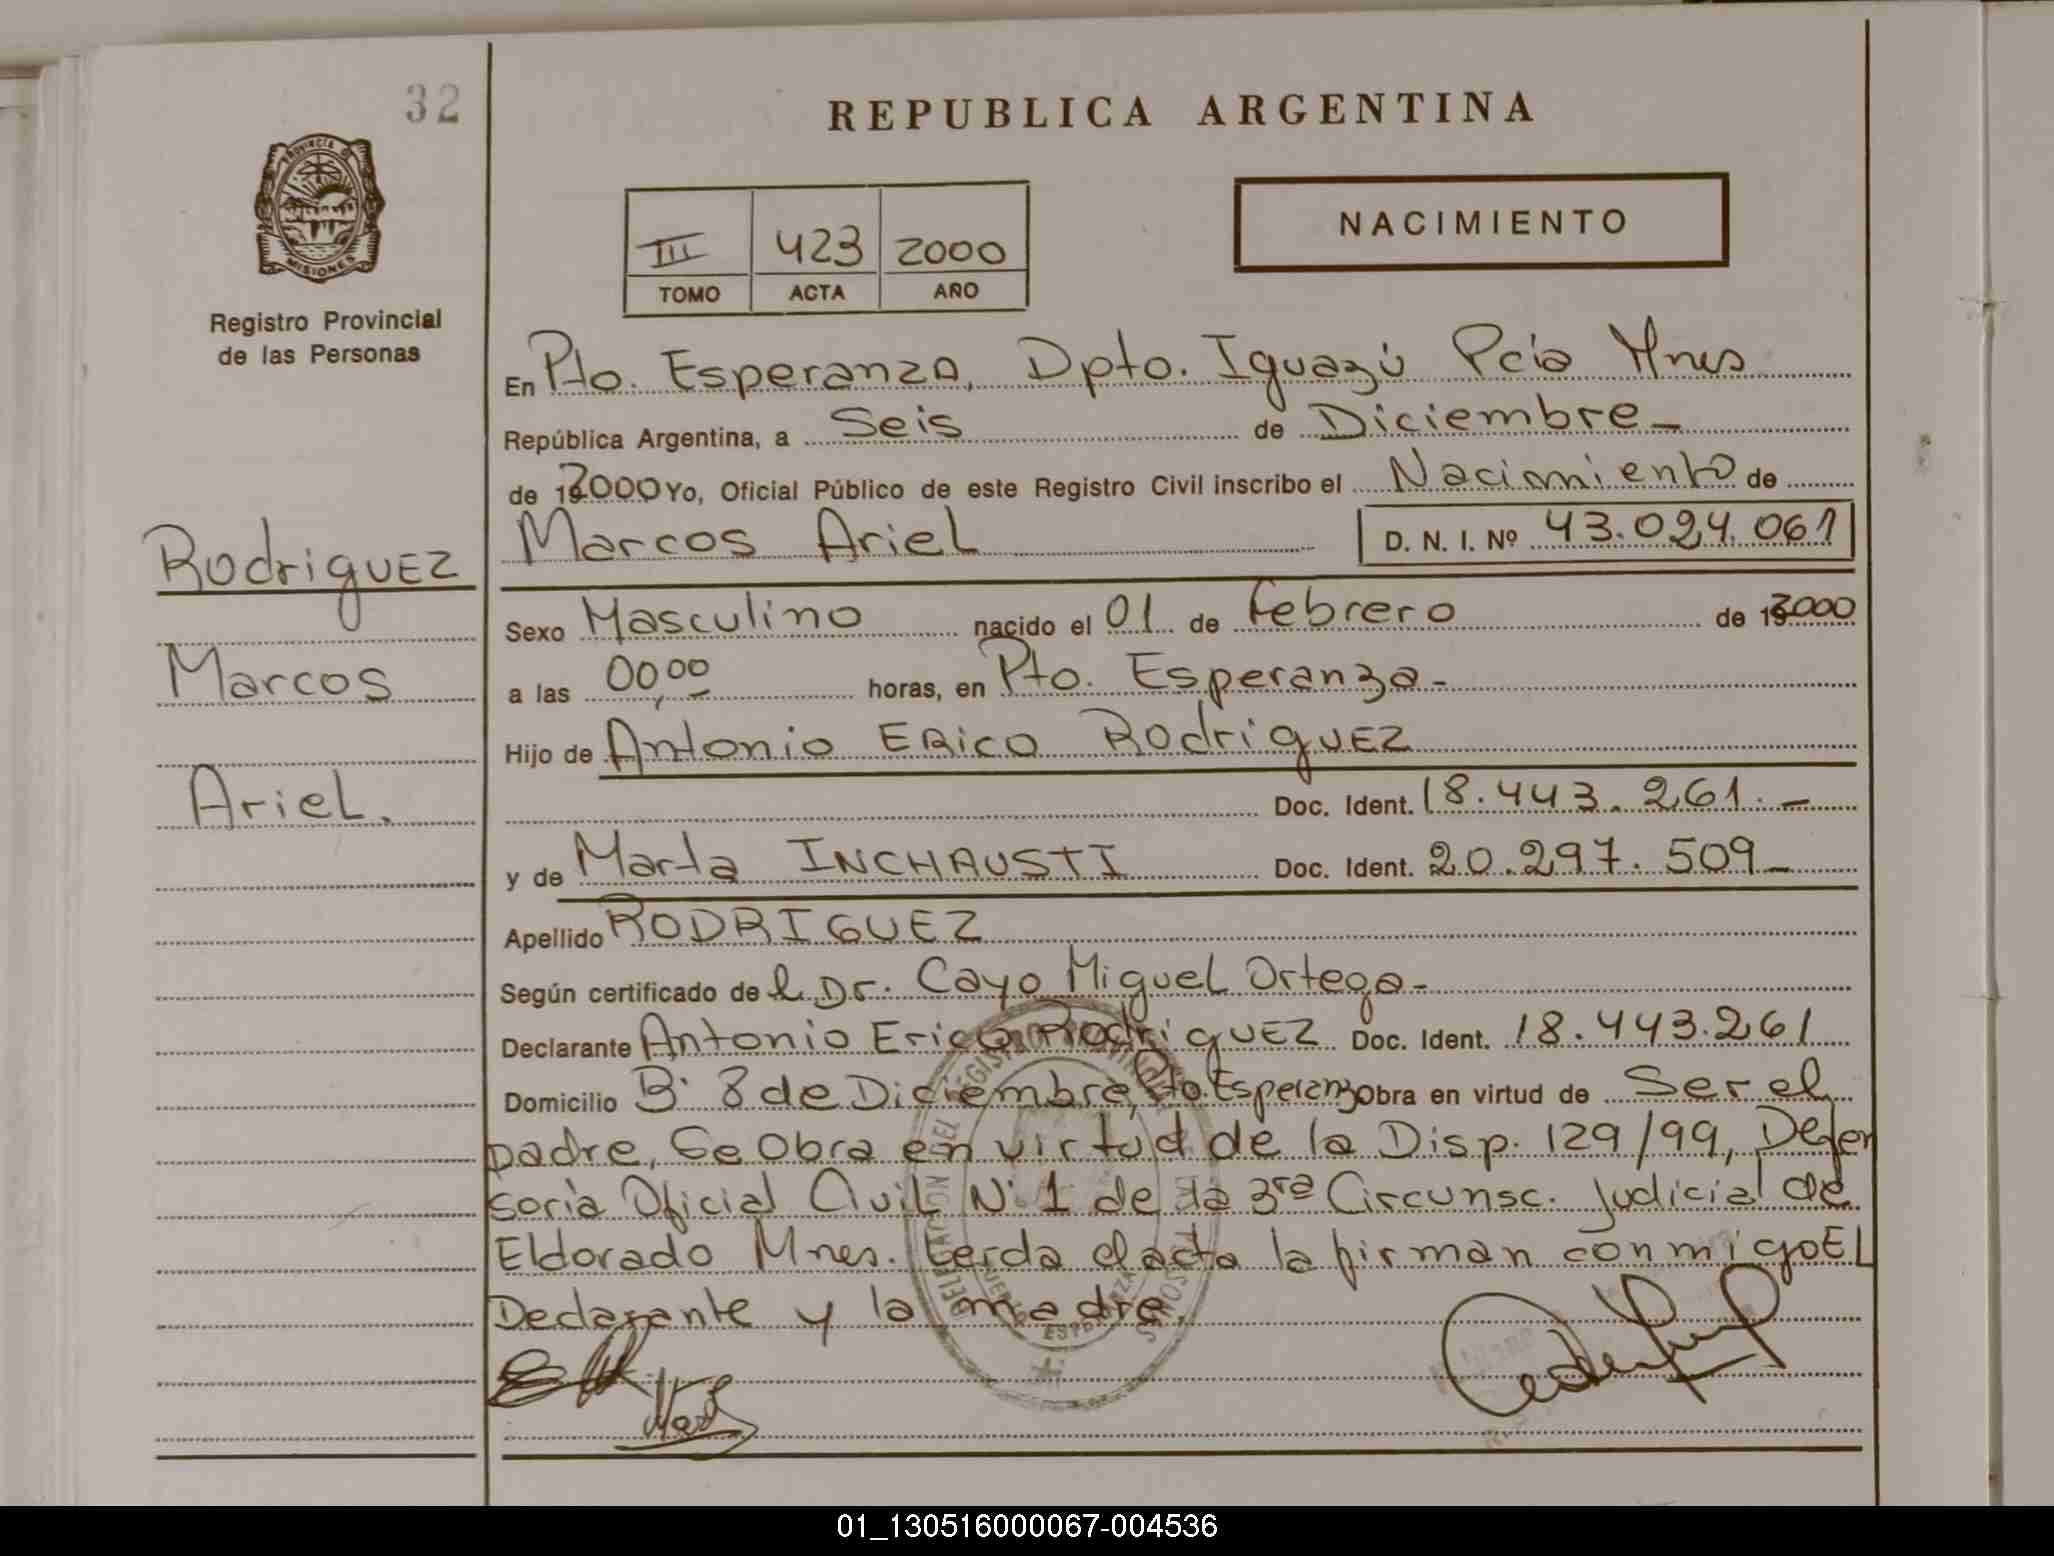 32
REPUBLICA ARGENTINA
PROVINCIA DE
MISIONES
Registro Provincial
de las Personas
III 423 2000
TOMO ACTA AÑO
NACIMIENTO
En Pto. Esperanza, Dpto. Iguazú Pcia Mnes
República Argentina, a Seis de Diciembre_
de 2000 Yo, Oficial Público de este Registro Civil inscribo el Nacimiento de
Marcos Ariel D. N. I. Nº 43.024.061
Rodriguez
Marcos
Ariel.
Sexo Masculino nacido el 01 de Febrero de 2000
a las 00,00 horas, en Pto. Esperanza-
Hijo de Antonio Erico Rodriguez
Doc. Ident. 18.443.261.-
y de Marta INCHAUSTI Doc. Ident. 20.297.509-
Apellido RODRIGUEZ
Según certificado del Dr. Cayo Miguel Ortega-
Declarante Antonio Erico Rodriguez Doc. Ident. 18.443.261
Domicilio Bº 8 de Diciembre, Pto. Esperanza obra en virtud de Ser el
padre, Se Obra en virtud de la Disp. 129/99, Defen
soria Oficial Civil Nº 1 de la 3ra Circunsc. Judicial de
Eldorado Mnes. Leida el acta la firman conmigo EL
Declarante y la madre.
01_130516000067-004536